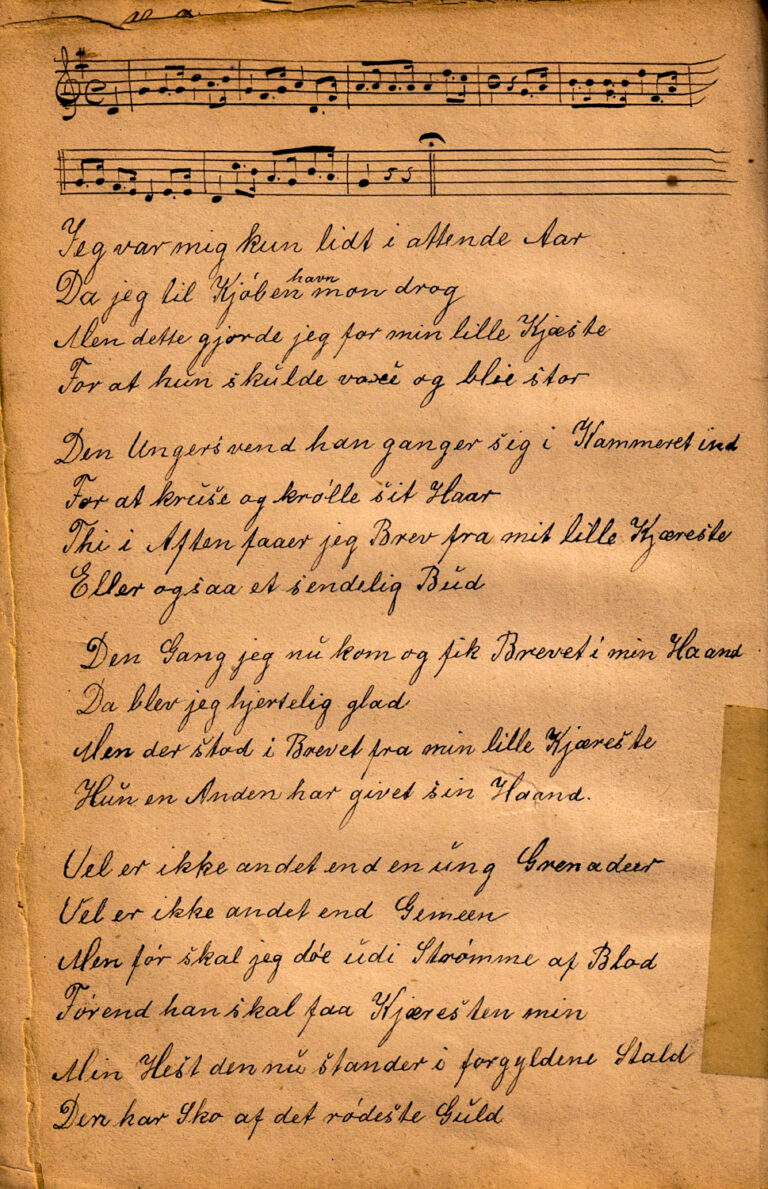 Jeg var mig kun lidt i attende Aar
Da jeg til Kjöbenhavn mon drog
Men dette gjorde jeg for min lille Kjæste
For at hun skulde voxe og blie stor
Den Ungersvend han ganger sig i Kammeret ind
For at kruse og krölle sit Haar
Thi i Aften faaer jeg Brev fra mit lille Kjæreste
Eller ogsaa et sendelig Bud
Den Gang jeg nu kom og fik Brevet i min Haand
Da blev jeg hjertelig glad
Men der stod i Brevet fra min lille Kjæreste
Hun en Anden har givet sin Haand.
Vel er ikke andet end en ung Grenadeer
Vel er ikke andet end Gemeen
Men för skal jeg döe udi Strömme af Blod
Förend han skal faa Kjæresten min
Min Hest den nu stander i forgyldene Stald
Den har Sko af det rödeste Guld